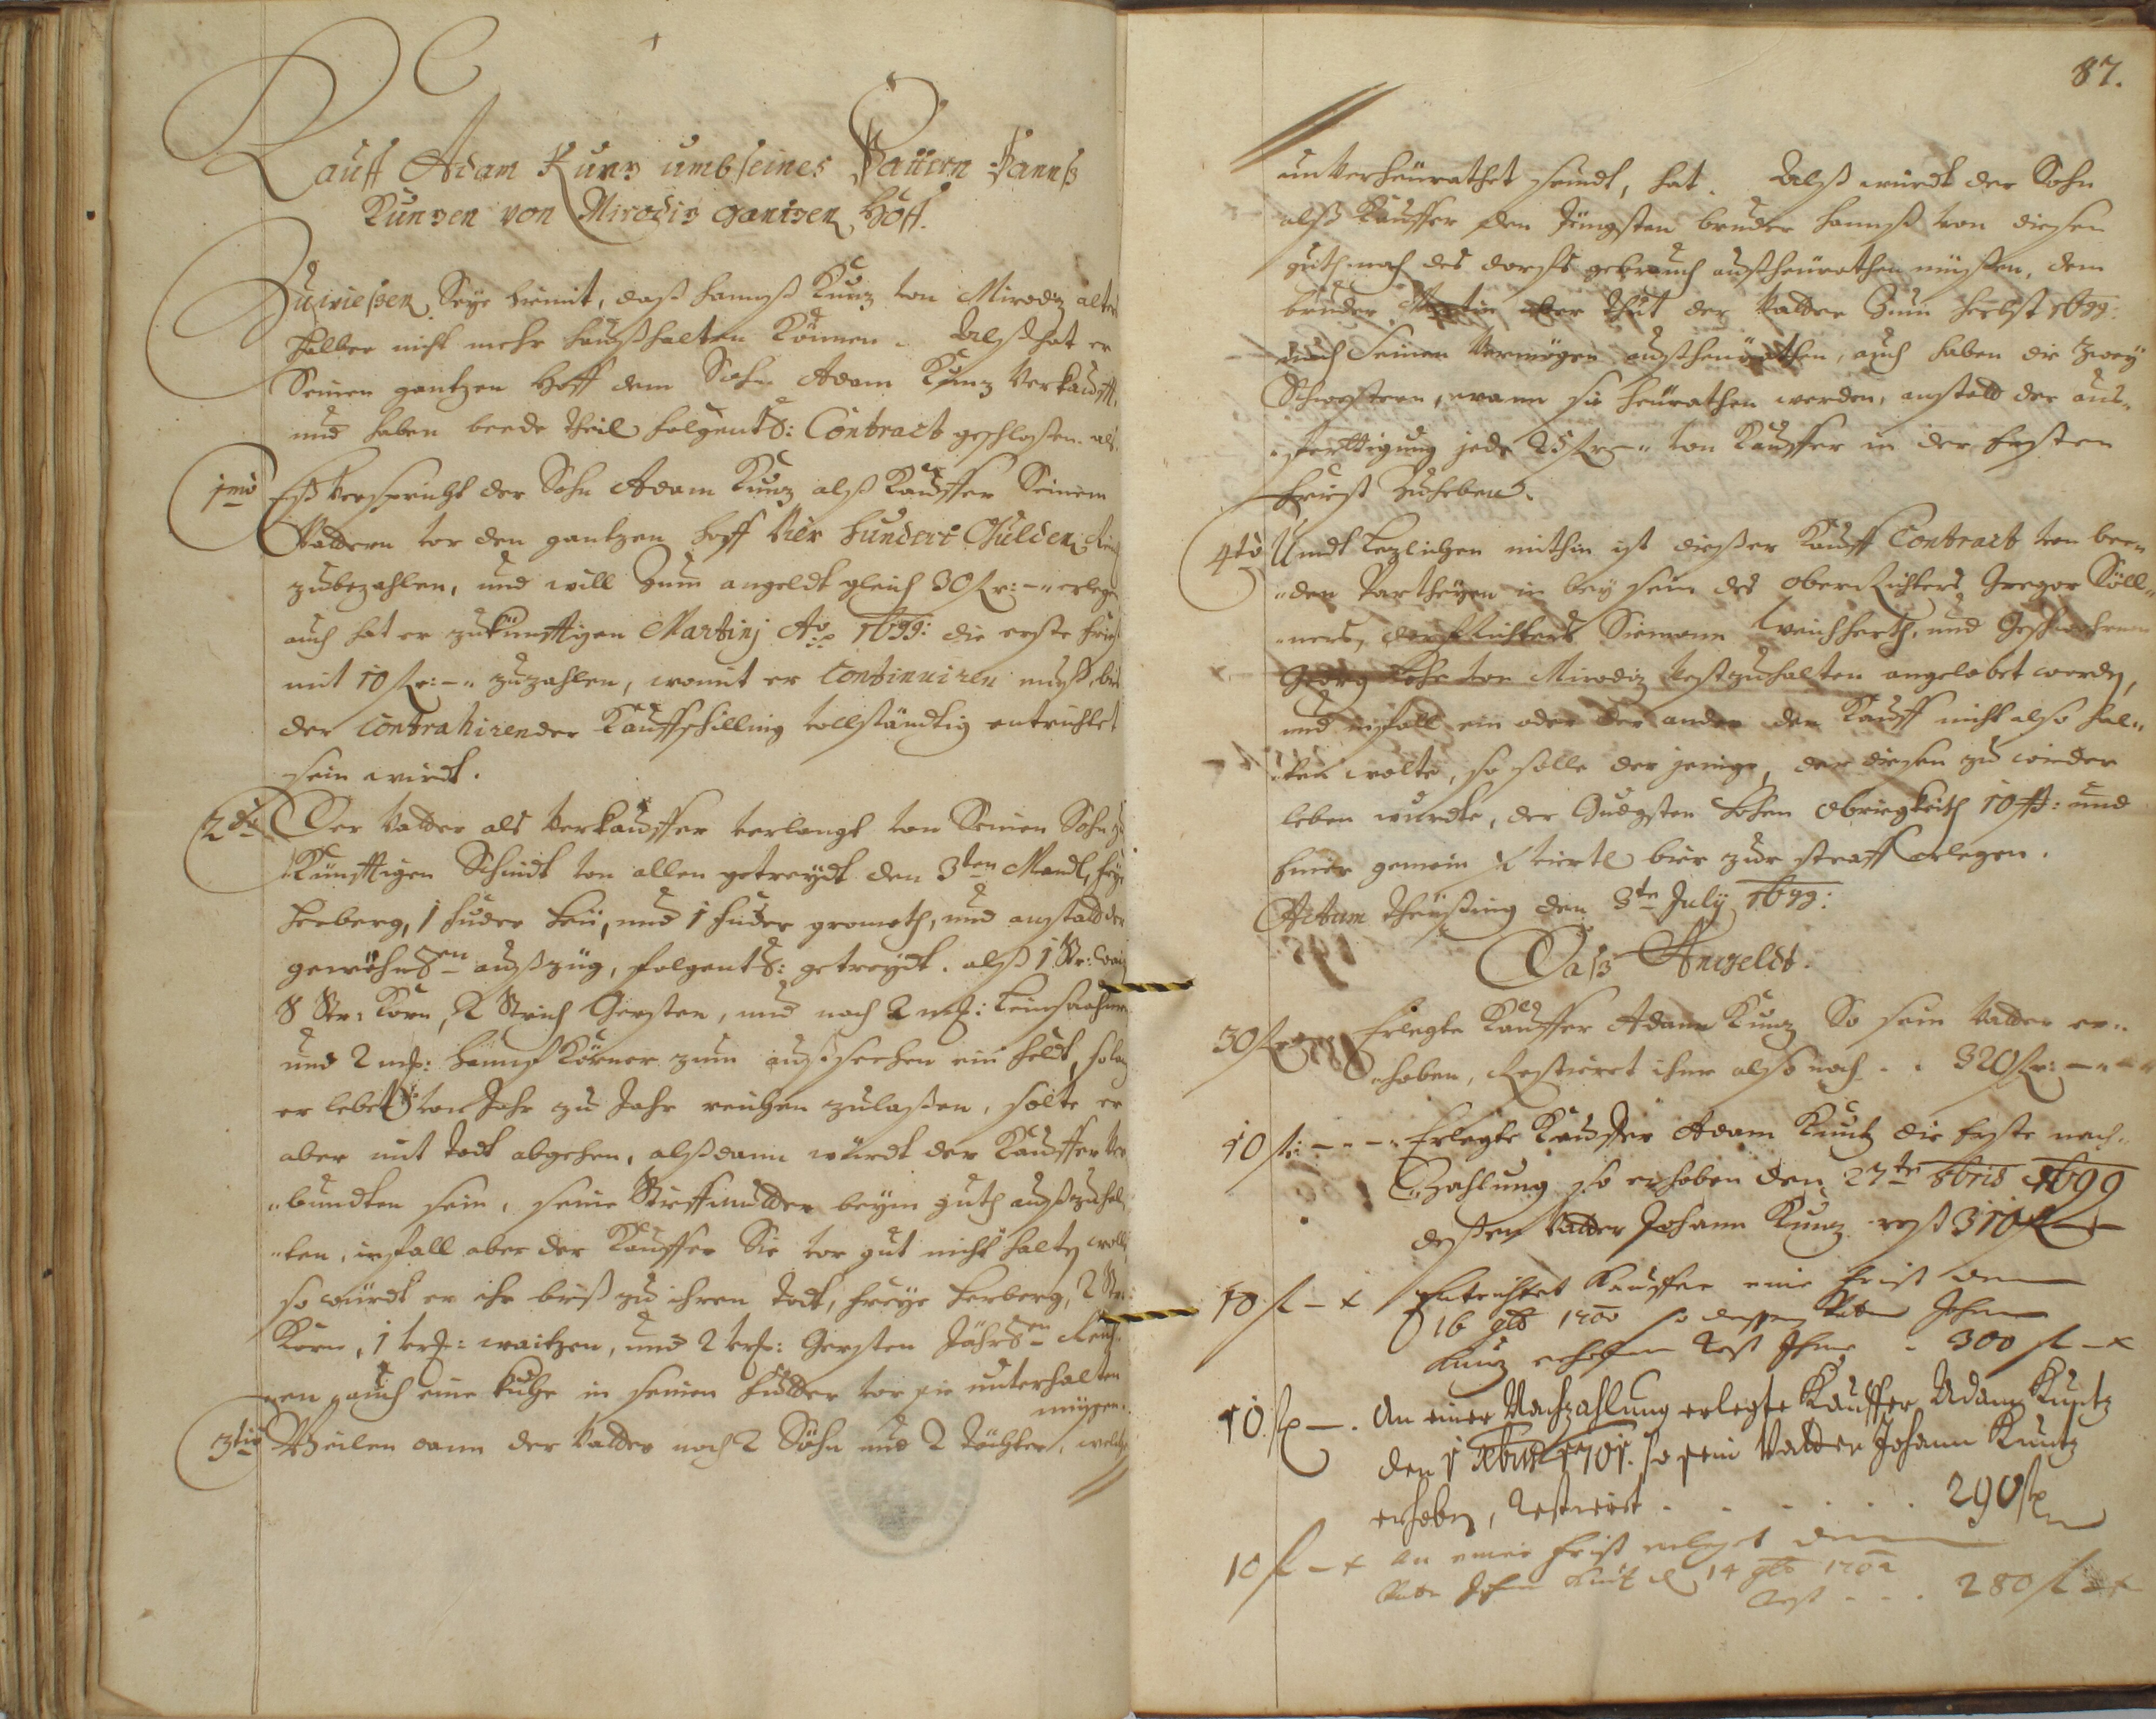 Kauff Adam Kunz umb seines Vattern Hannß
Kunzen von Mirodiz gantzen Hoff.
Zuwießen Seye hiemit, daß Hannß Kunz von Mirodiz alters
halber nicht mehr haußhalten können. Alß hat er
Seinen gantzen Hoff dem Sohn Adam Kunz verkaufft,
und haben beede theil folgents: Contract geschloßen. als
1mo Eß verspricht der Sohn Adam Kunz alß Kauffer Seinem
Vattern vor den gantzen hoff Vier hundert Gulden
zubezahlen, und will zum angeldt gleich 30 fl: erlegen
auch hat er zukünfftigen Martinj Ao 1699: die erste frist
mit 10 fl: zuzahlen, womit er Continuiren muß, biß
der Contrahirender Kauffschilling vollständig entrichtet
sein wirdt.
2do Der Vatter als Verkauffer verlangt von Seinen Sohn zu
Künfftigen Schnidt von allen getreydt den 3ten Mandl, freye
Herberg, 1 fuder heü, und 1 fuder grometh, und anstatt der
außzüg, folgents: getreydt. alß 1 Str:
8 Str: Korn, 2 Strich Gersten, und noch 2 Leinsaahmen
und 2 hanif Körner zum außseehen ein feldt, solang
er lebet von Jahr zu Jahr reichen zulaßen, solte er
aber mit todt abgehen, alßdann würdt der Kauffer ver
bundten sein, seine Stieffmutter beym guth außzuhal
ten, infall aber der Kauffer Sie vor gut nicht halten wolte
so würdt er ihr biß zu ihren todt, freye herberg, 2 Str:
Korn, 1 waitzen, und 2 Gersten Jährl. Reich
nen, auch eine Kuhe in seinen futter vor sie unterhalten
müßen.
3tio Weilen dann der Vatter noch 2 Söhn und 2 Töchter, welche
87.
unverheürathet seindt, hat. Alß würdt der Sohn
alß Kauffer den Jüngsten bruder Hannß von diesen
guth nach des dorfs gebrauch außheürathen müßen, dem
bruder aber thut der Vatter zum herbst 1699:
nach Seinen Vermögen außheürathen, auch haben die zwey
Schwestern, wann sie heürathen werden, anstatt der aus
ferttigung jede 25 fl von Kauffer in der Ersten
friest zuheben.
4to Undt lezlichen mithin ist dießer Kauff Contract von bee
den Partheyen in bey sein des oberRichters Gregor Söll
ners, dorfRichters Siemonn und Geschwohrnen
Georg von Mirodiz vestzuhalten angelobet worden,
und infall ein oder der ander den Kauff nicht also hal
ten wolte, so solle der jenige, der diesen zu wieder
leben wurdte, der Gnedgsten hohen Obriegkeith 10 ß: und
Einer gemein 2 viertl bier zur straff erlegen.
Actum Theüßing den 8te July 1699:
Daß Angeldt.
30 fl Erlegte Kauffer Adam Kunz So sein Vatter er
hoben, Restieret ihme also noch . . 320 fl: —
10 fl: — Erlegte Kauffer Adam Kuntz die Erste nach
zahlung so erhoben den 27te 8bris 1699
deßen Vatter Johann Kunz rest 310 fl —
10 fl — x Entrichtet Kauffer eine frist den
16 9b 1700 so dessen Vatter Johan
Kunz erhoben Rest Ihme . 300 fl — x
10 fl —. An einer Nachzahlung erlegte Kauffer Adam Kuntz
den 1 1701. so sein Vatter Johann Kuntz
erhoben, Restieret . . . . . . 290 fl
10 fl — x An einer frist erleget dem
Vatter Johan Kuntz d 14 9b 1702
Rest . . . 280 fl — x